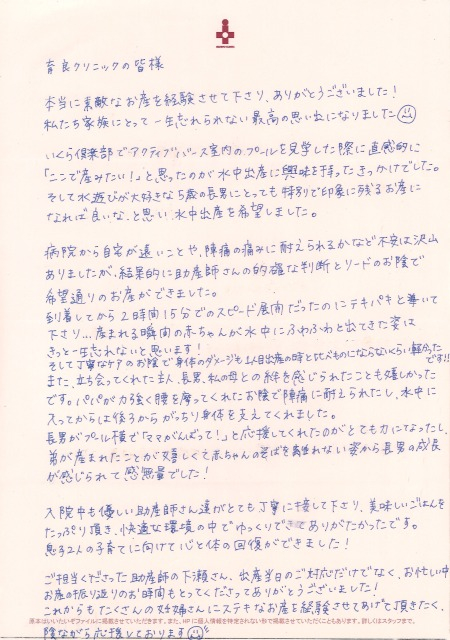 育良クリニックの皆様
本当に素敵なお産を経験させて下さり、ありがとうございました！
私たち家族にとって一生忘れられない最高の思い出になりました
いくら倶楽部でアクティブバース室内のプールを見学した際に直感的に
「ここで産みたい！」と思ったのが水中出産に興味を持ったきっかけでした。
そして水遊びが大好きな5歳の長男にとっても特別で印象に残るお産に
なれば良いな、と思い水中出産を希望しました。
病院から自宅が遠いことや、陣痛の痛みに耐えられるかなど不安は沢山
ありましたが、結果的に助産師さんの的確な判断とリードのお陰で
希望通りのお産ができました。
到着してから2時間15分でのスピード展開だったのにテキパキと導いて
下さり…産まれる瞬間の赤ちゃんが水中にふわふわと出てきた姿は
きっと一生忘れないと思います！
そして丁寧なケアのお陰で身体のダメージも1人目出産の時と比べものにならないくらい軽かったです!!
また、立ち会ってくれた主人、長男、私の母との絆を感じられたことも嬉しかった
です。パパが力強く腰を摩ってくれたお陰で陣痛に耐えられたし、水中に
入ってからは後ろからがっちり身体を支えてくれました。
長男がプール横で「ママがんばって！」と応援してくれたのがとても力になったし、
弟が産まれたことが嬉しくて赤ちゃんのそばを離れない姿から長男の成長
が感じられて感無量でした！
入院中も優しい助産師さん達がとても丁寧に接して下さり、美味しいごはんを
たっぷり頂き、快適な環境の中でゆっくりできてありがたかったです。
息子2人の子育てに向けて心と体の回復ができました！
ご担当くださった助産師の下瀬さん、出産当日のご対応だけでなく、お忙しい中
お産の振り返りのお時間もとってくださってありがとうございました！
これからもたくさんの妊婦さんにステキなお産を経験させてあげて頂きたく、
原本はいいたいぞファイルに掲載させていただきます。また、HPに個人情報を特定されない形で掲載させていただくこともあります。詳しくはスタッフまで。
陰ながら応援しております